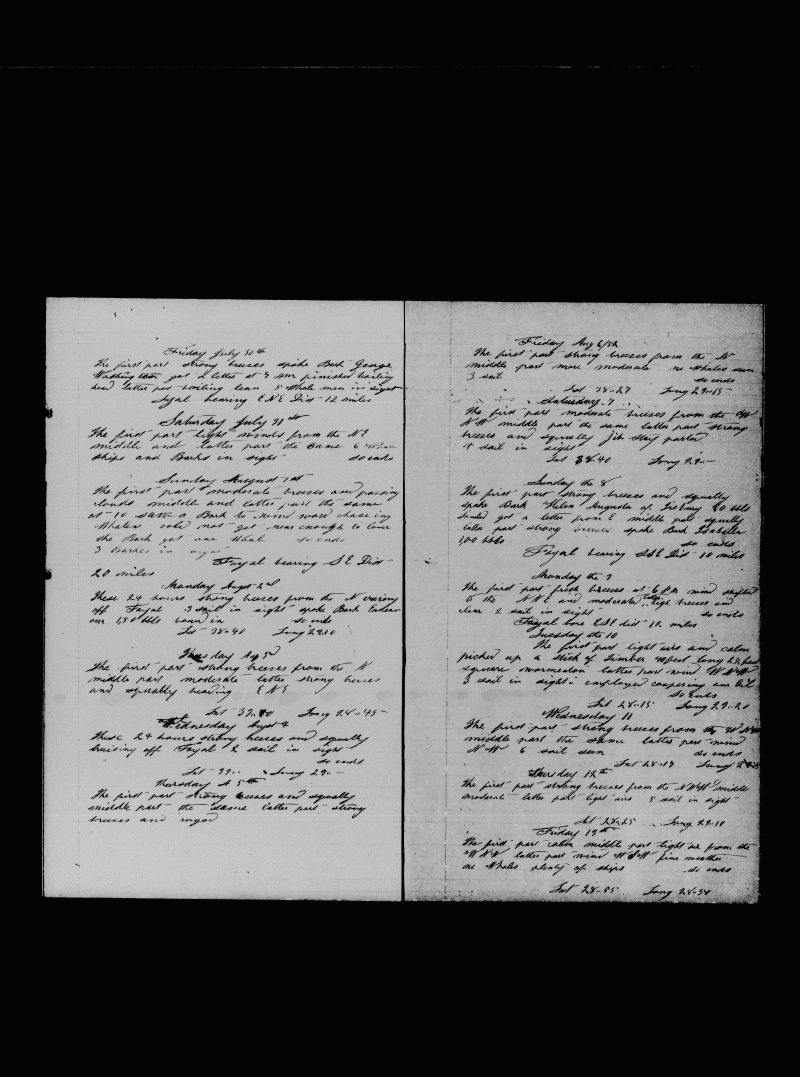 Friday July 30th
The first part strong breezes spoke Bark George
Washington got a letter at 7 finished boiling
head latter part boiling lean 5 Whale men in sight
Fayal bearing ENE Dist 12 miles
Saturday July 31st
The first part light winds from the NE
middle and latter part the same 6
Ships and Barks in sight So ends
Sunday August 1st
The first part moderate breezes and passing
clouds middle and latter part the same
at 10 saw a Bark to wind ward chaseing
Whales could not get near enough to lower
the Bark got one Whale So ends
3 Barkes in sight
Fayal bearing SE Dist
20 miles
Monday Augst 2nd
These 24 hours strong breezes from the N cruising
off Fayal 3 sail in sight spoke Bark
our 150 bbls So ends
Lat 38..40 Long 29.10
Tuesday Ag 3d
The first part strong breezes from the N
middle part moderate latter strong breeses
and squally heading ENE
Lat 39.. Long 28..45
Wednesday Augst 4
These 24 hours strong breezes and squally
cruising off Fayal 2 sail in sight
So ends
Lat 39.. Long 29..
Thursday A 5th
The first part strong breezes and squally
middle part the same latter part strong
breeses and ruged
Friday Aug 6/52
The first part strong breezes from the N
middle part more moderate no Whales seen
3 sail So ends
Lat 38..27 Long 29..15
Saturday 7
The first part moderate breeses from the W
NW middle part the same latter part strong
breeses and squally Jib stay parted
4 sail in sight
Lat 38.40 Long 29..
Sunday the 8
The first part strong breezes and squally
spoke Bark Helen Augusta of 80 bbls
got a letter from E middle part squally
latter part strong breeses spoke Bark Isabella
100 bbls So ends
Fayal bearing SSE Dist 10 miles
Monday the 9
The first part fresh breeses at 6 PM wind shifted
to the NNE and moderate latter light breeses and
clear 2 sail in sight So ends
Fayal bore ESE dist 12 miles
Tuesday the 10
The first part light airs and calm
picked up a stick of Timber 40 feet long
square latter part wind WNW
3 sail in sight employed coopering our Oil
So ends
Lat 38..15 Long 29..20
Wednesday 11
The first part strong breezes from the WNW
middle part the same latter part wind
NW 6 sail seen So ends
Lat 38..19 Long
Thursday 12th
The first part strong breeses from the NNW middle
moderate latter part light airs 5 sail in sight
Lat 38..25 Long 29..10
Friday 13th
The first part calm middle part light air from the
WNW latter part wind WSW fine weather
no Whales plenty of ships So ends
Lat 38..55 Long 28..54